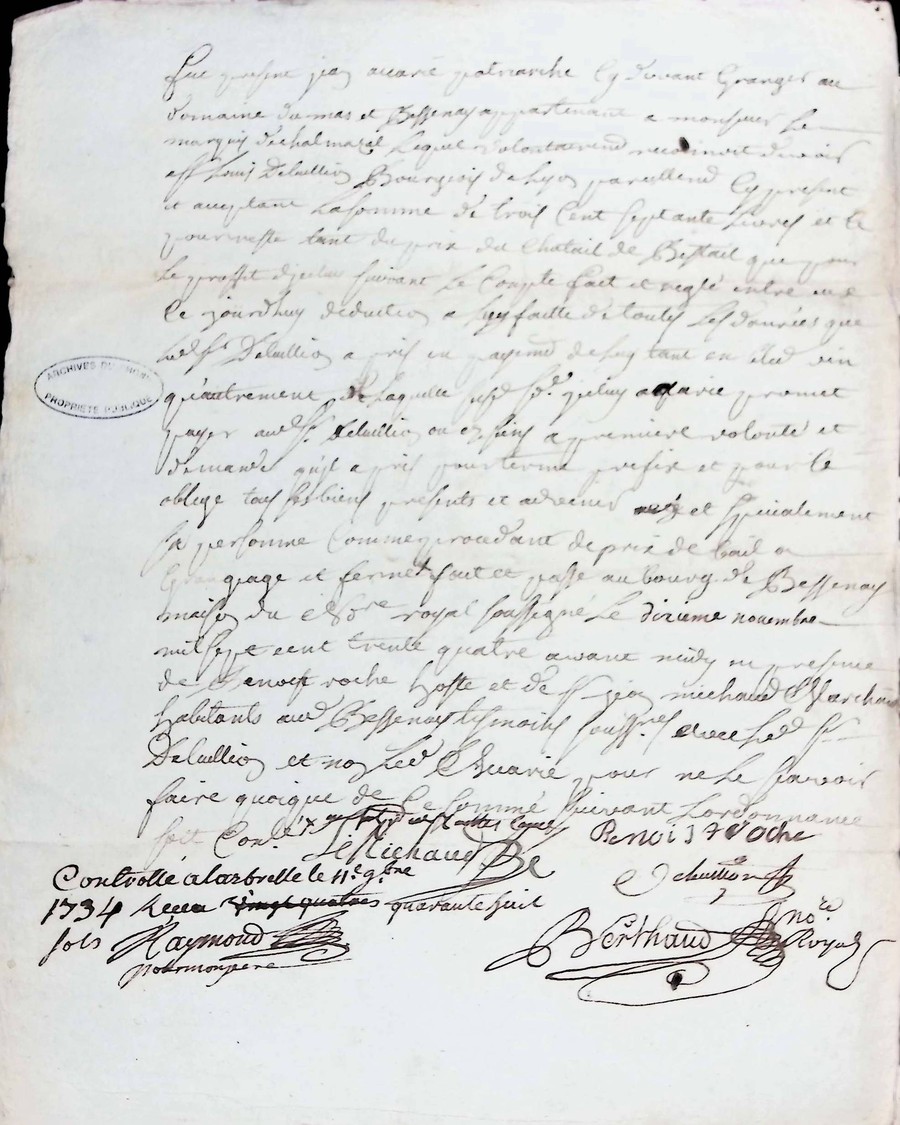 fut present jean avarie patriarche cy devant Granger au
domaine du mas et Bessenay appartenant a monsieur Le
marquis de chalmazel Lequel volontairemt reconnoit devoir
a sr Louis Delullion Bourgeois de Lyon pareillemt cy present
et aceptant La somme de trois cent septante Livres et ce
pour reste tant du prix du Chatail de Bestail que pour
le proffit d'jceluy suivant Le Compte fait et reglé entre eux
Ce jourd'huy deduction a luy faitte de touttes Les denrées que
Led. sr. Delullion a pris en payemt de luy tant en bled vin
qu'autrement Laquelle susd. avarie promet
payer aud. sr. Delullion ou es siens a premiere volonté et
demande qu'il a pris pour terme prefix et pour ce
oblige tous ses biens presents et advenir et specialement
sa personne Comme procedant de prix de bail a
Grangeage et ferme fait et passé au bourg de Bessenay
maison du nore royal soussigné Le dixieme novembre
mil sept cent trente quatre avant midy en presence
de Benoist roche hoste et de sr jean michaud Marchand
habitants aud. Bessenay tesmoins soussnes avec Led. sr
Delullion et non Led. Avarie pour ne Le scavoir
faire quoique de Ce sommé suivant Lordonnance
soit Conlé.
J Michaud Benoist Roche
Controllé a larbrelle le 11e 9bre
1734 Receu vingt quatres quarante huit
sols Raymond
pour mon pere
Berthaud nore
Royal
ARCHIVES DU
PROPRIÉTÉ PUBLIQUE